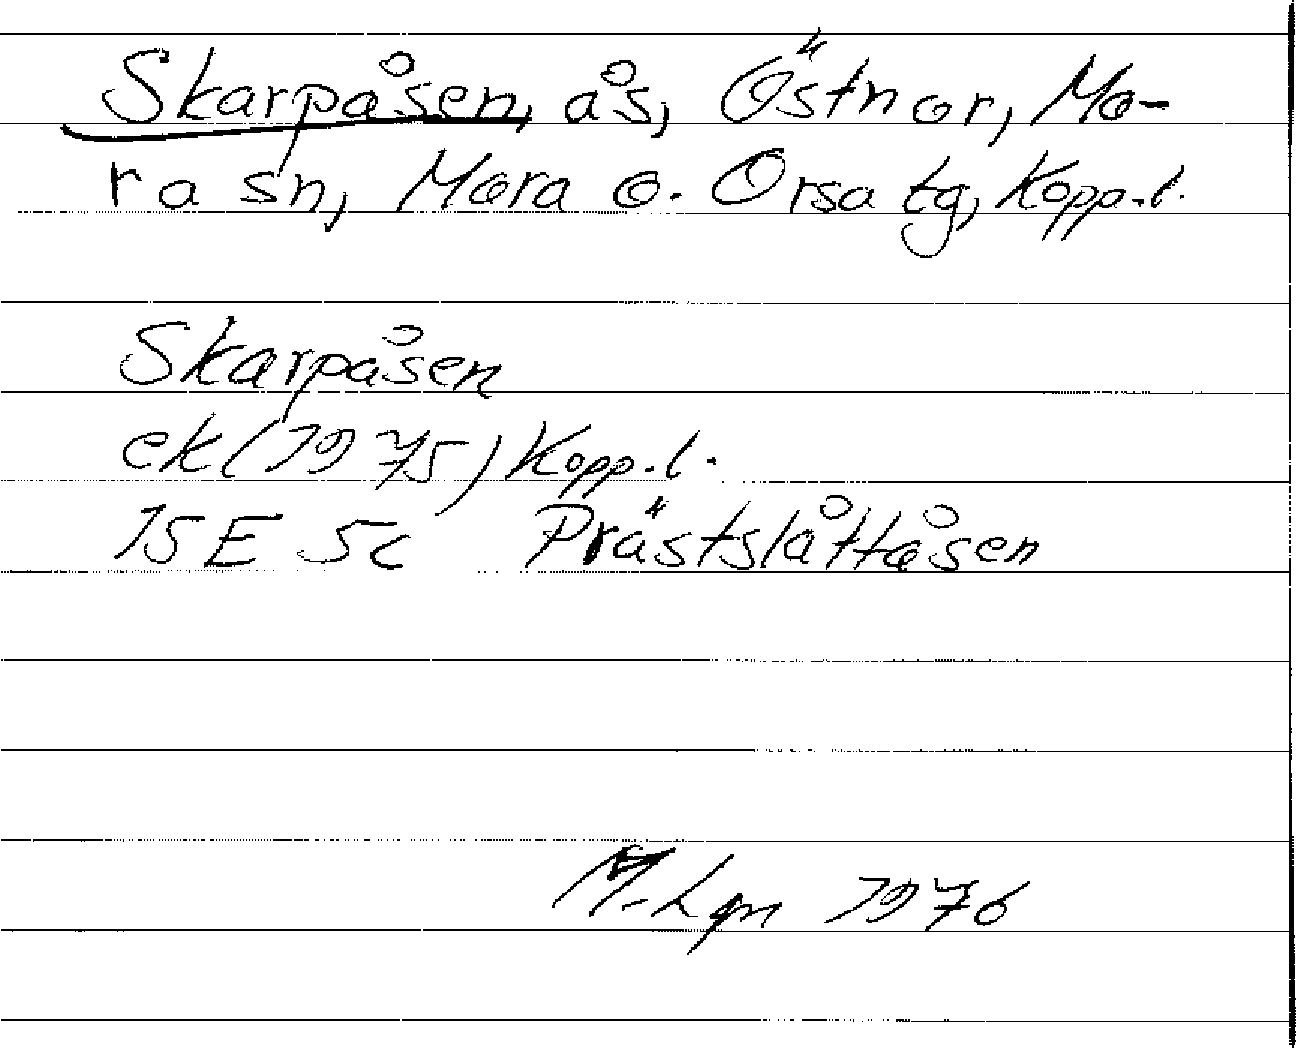 Skarpåsen, ås, Östnor, Mo-
ra sn, Mora o. Orsa tg, Kopp.l.
Skarpåsen
ek (1975) Kopp.l.
15E 5c Prästslåttåsen
1976